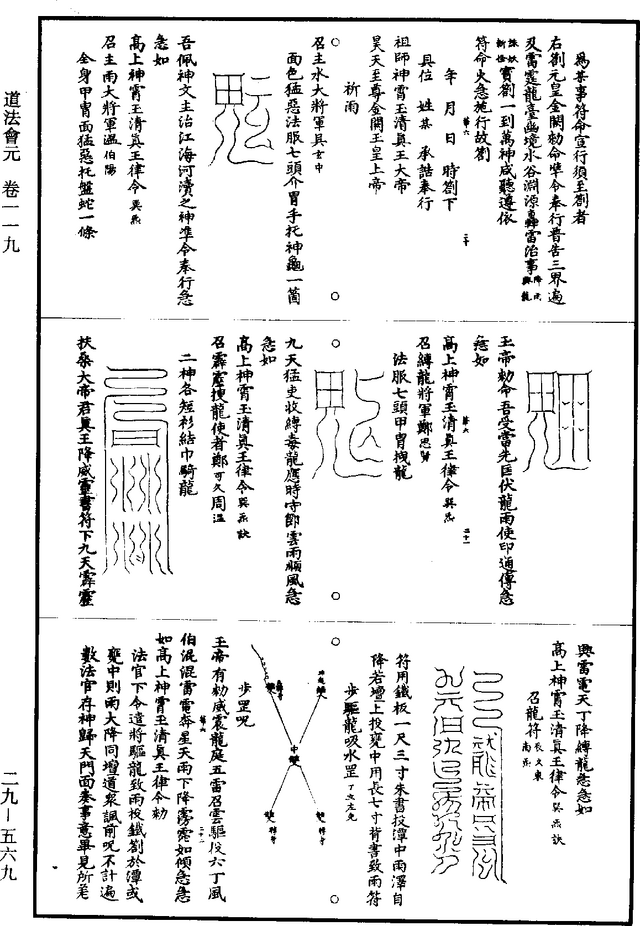 爲某事符命宣行須至劄者
右劄元皇金闕勑命準令奉行普告三界遍
及雷霆龍臺幽境水谷淵源轟雷治事
寳劄一到萬神咸聽遵依
符命火急施行故劄
年 月 日 時劄下
具位 姓某 承誥奉行
祖師神霄玉清真王大帝
昊天至尊金闕玉皇上帝
祈雨
召主水大將軍具玄中
面色猛惡法服七頭介冑手托神龜一箇
吾佩神文主治江海河瀆之神準令奉行急
急如
高上神霄玉清真王律令巽炁
召主雨大將軍溫伯陽
全身甲冑面猛惡托盤蛇一條
玉帝勑命吾受雷先匡伏龍雨使印通傳急
急如
高上神霄玉清真王律令巽炁
召縛龍將軍鄭思賢
法服七頭甲冑拽龍
九天猛吏收縛毒龍應時守節雲雨順風急
急如
高上神霄玉清真王律令巽炁訣
召霹靂捜龍使者鄭可久周温
二神各短衫結巾騎龍
扶桑大帝君真王降威靈書符下九天霹靂
興雷電天丁降縛龍急急如
高上神霄玉清真王律令巽炁訣
召龍符
符用鐵板一尺三寸朱書投潭中雨澤自
降若壇上投甕中用長七寸背書致雨符
步驅龍吸水罡
中
步罡呪
玉帝有勑威震龍庭五雷召雲驅役六丁風
伯混混雷電奔星天雨下降霶霈如傾急急
如高上神霄玉清真王律令勑
法官下令遣將驅龍致雨投鐵劄於潭或
甕中則雨大降同壇道衆諷前呪不計遍
數法官存神歸天門面奏事意畢見所差
道法會元 卷一一九
二九—五六九